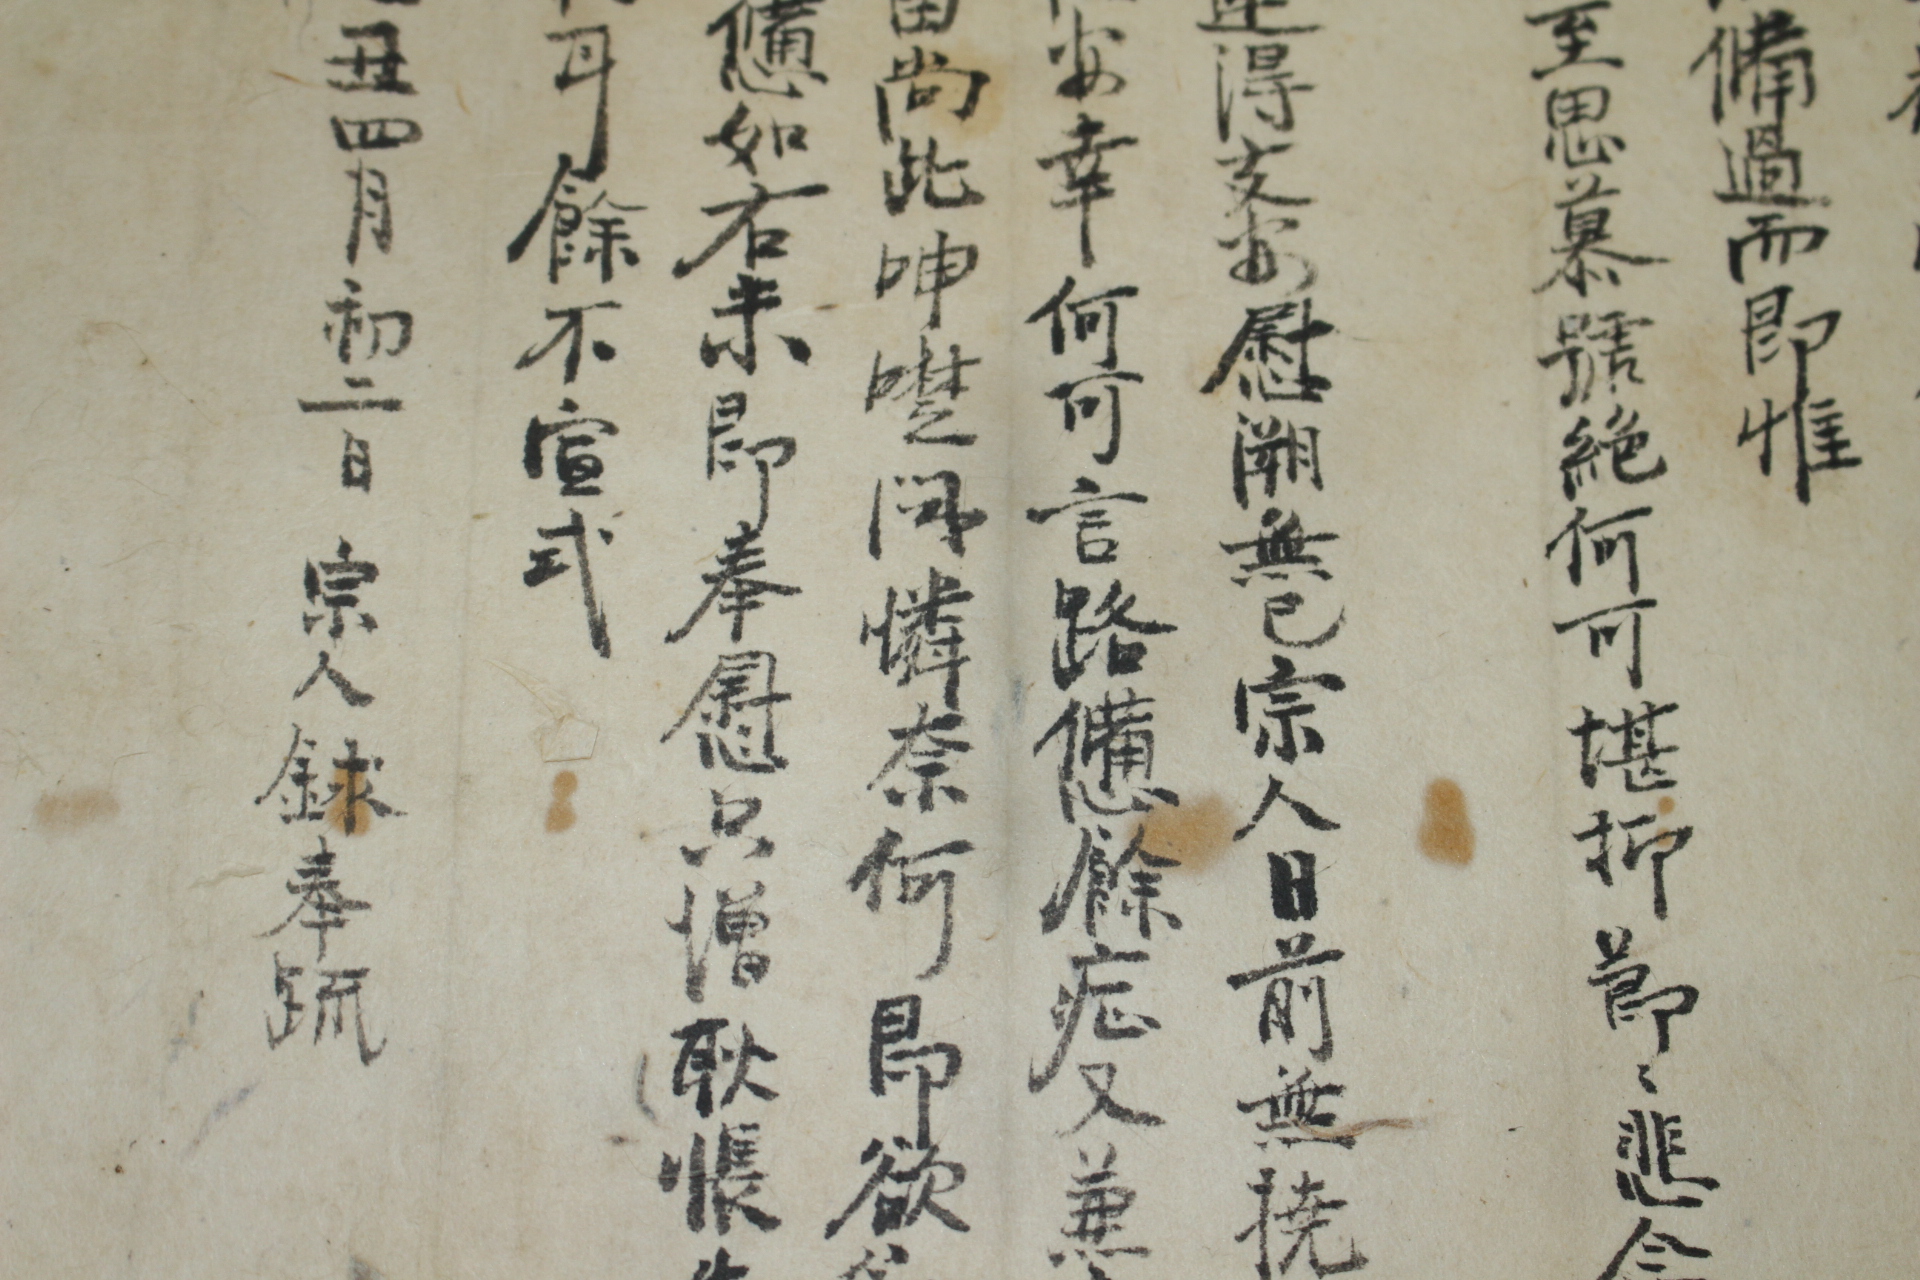 備過而即惟
至思慕號絕何可堪抑節〻悲念
得支安慰溯無已宗人日前無撓
安幸何可言路憊餘症又兼
留尚此呻囈悶憐奈何即欲
憊如右未即奉慰只增耿悵
耳餘不宣式
丑四月初二日 宗人銶奉疏